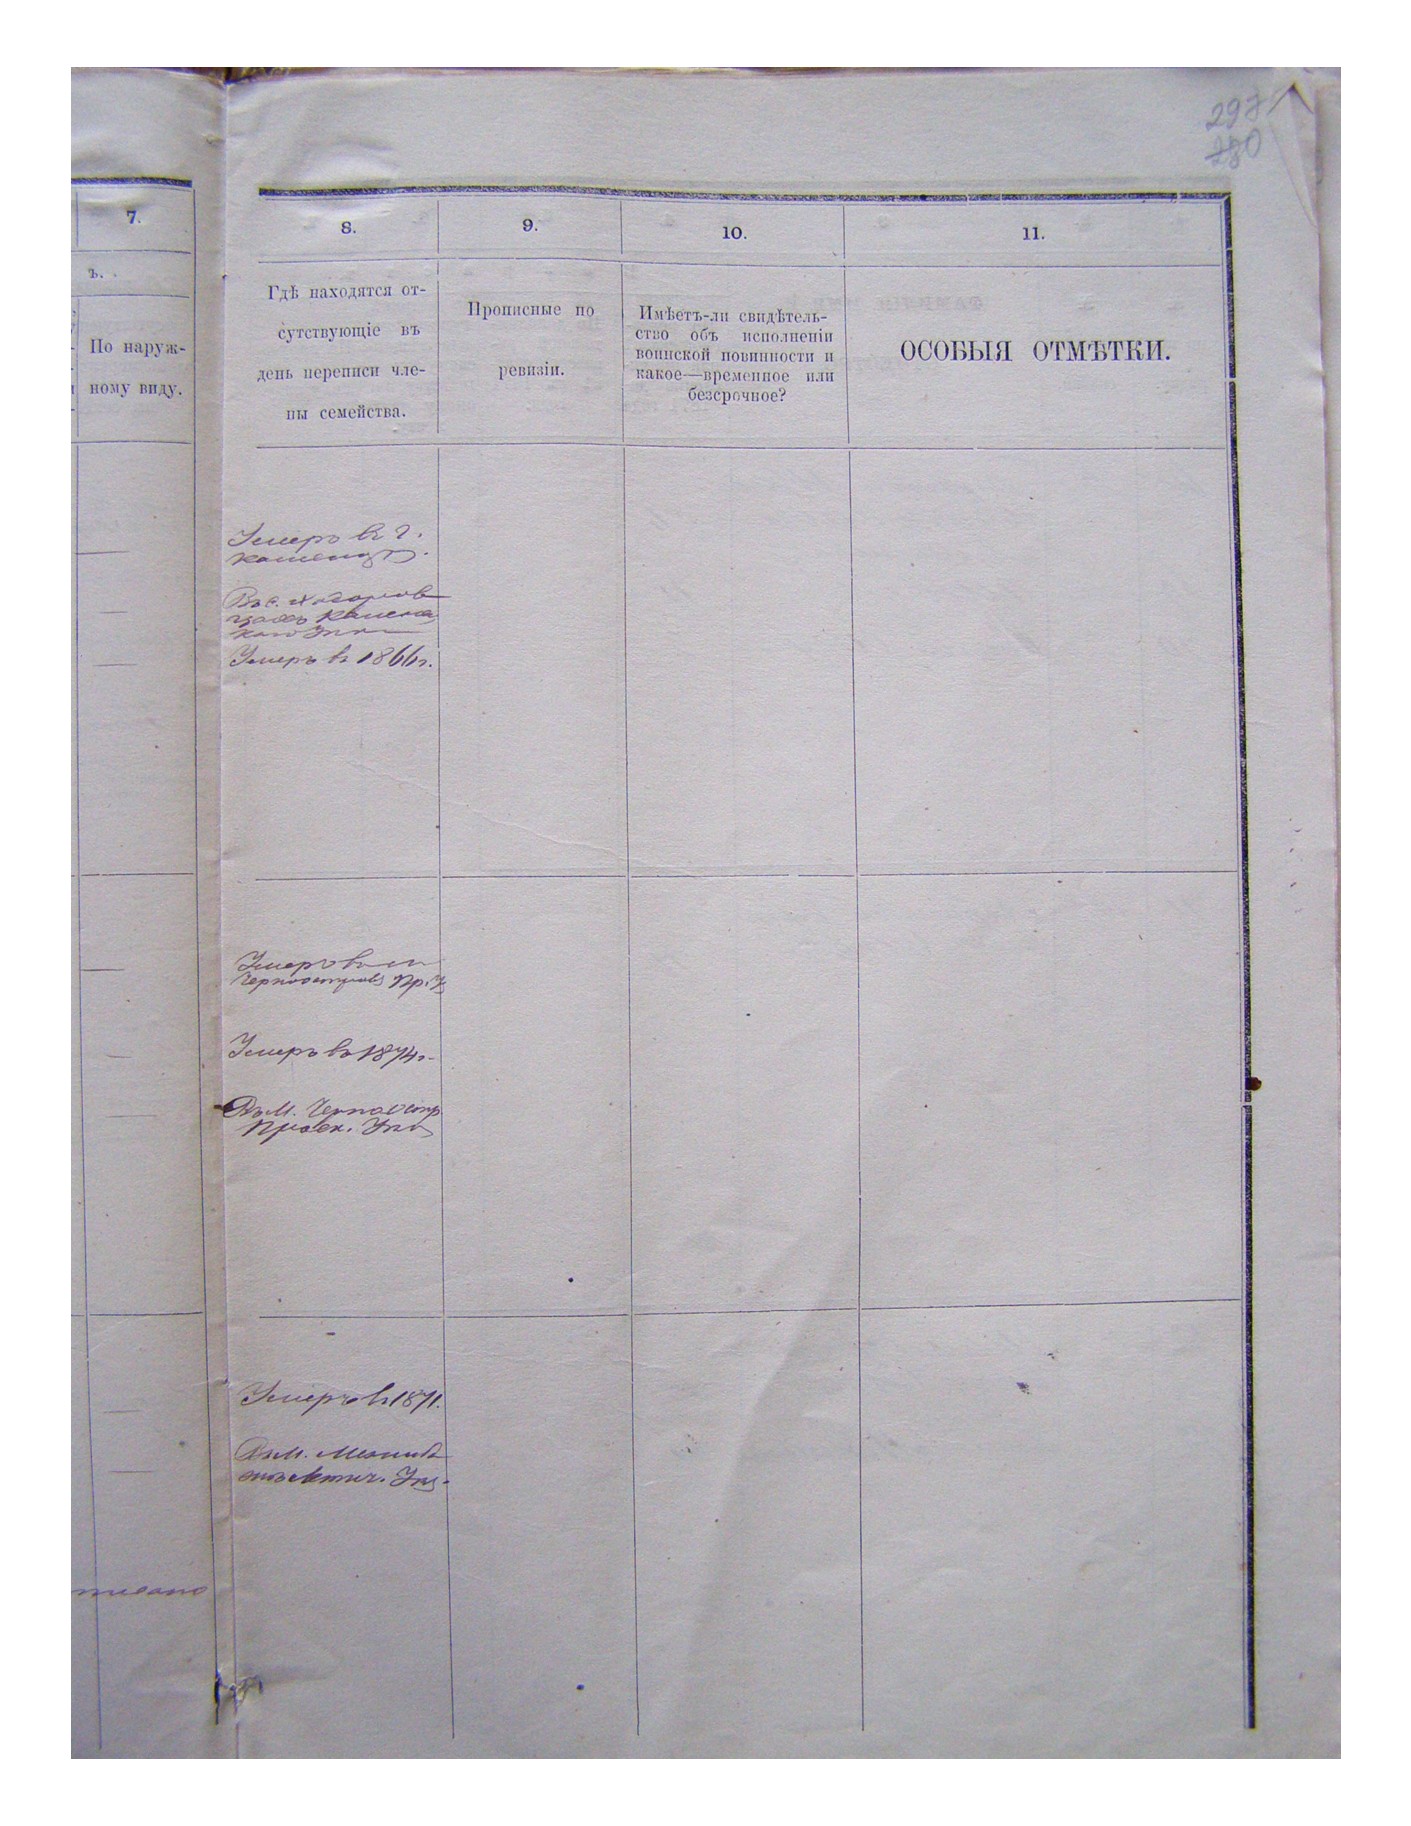 297
280
7.
8.
9.
10.
11.
ъ.
По наруж-
ному виду.
Гдѣ находятся от-
сутствующіе въ
день переписи чле-
ны семейства.
Прописные по
ревизіи.
Имѣетъ-ли свидѣтель-
ство объ исполненіи
воинской повинности и
какое—временное или
безсрочное?
ОСОБЫЯ ОТМѢТКИ.
Умеръ въ г.
Въ с.
Умеръ въ 1866 г.
Умеръ въ м
Черноостровѣ Пр. У
Умеръ въ 1874 г.
Въ М. Черноостр
Проск. Уѣз
Умеръ въ 1871.
Въ М.
Летич. Уѣз.